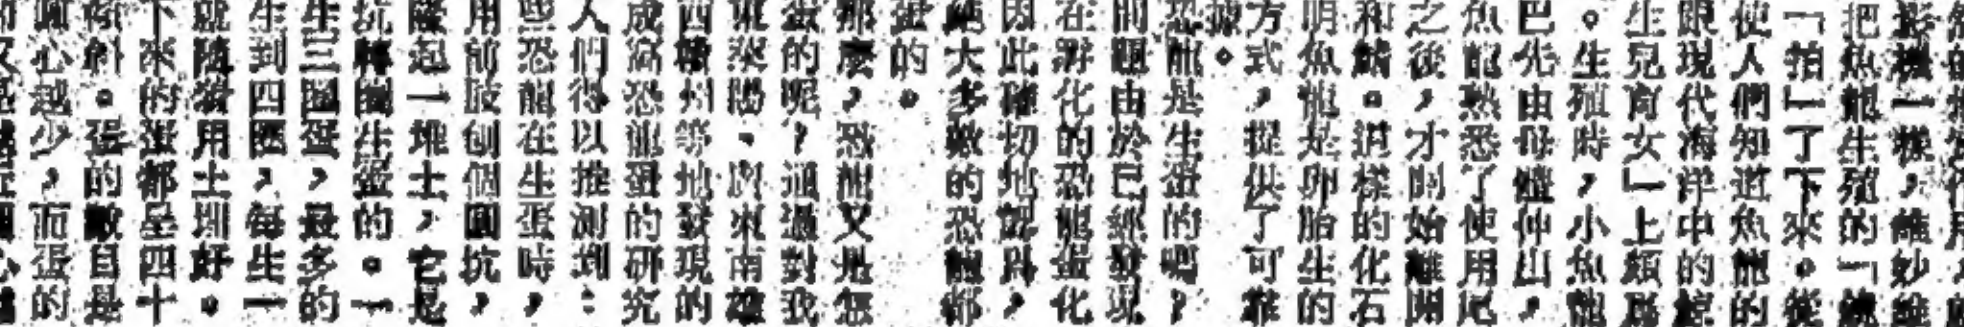 影機一樣，維妙維
把魚龍生殖的「鏡
「拍」了下來。從
使人們知道魚龍的
跟現代海洋中的鯨
生兒育女」上頗爲
。生殖時，小魚龍
巴先由母體伸出，
魚龍熟悉了使用尾
之後，才開始離開
和鱗。這樣的化石
明魚龍是卵胎生的
方式，提供了可靠
據。
恐龍是生蛋的嗎？
問題由於已經發現
在孵化的恐龍蛋化
因此確切地說，
絕大多數的恐龍都
蛋的。
那麼，恐龍又是怎
蛋的呢？通過對我
東萊陽、廣東南雄
西贛州等地發現的
成窩恐龍蛋的研究
人們得以推測到：
些恐龍在生蛋時，
用前肢刨個圓坑，
隆起一堆土，它是
坑轉圈生蛋的。一
生三圈蛋，最多的
生到四圈，每生一
就隨後用土埋好。
下來的蛋都呈四十
傾斜。蛋的數目是
圓心越少，而蛋的